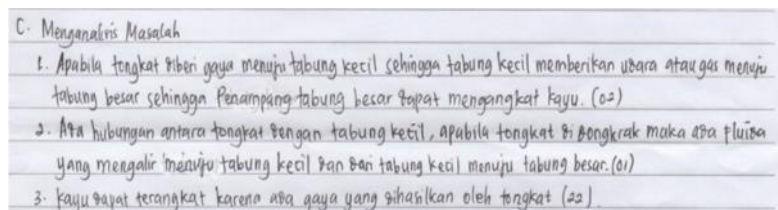 C. Menganalisis Masalah
1. Apabila tongkat diberi gaya menuju tabung kecil sehingga tabung kecil memberikan udara atau gas menuju
tabung besar sehingga Penampang tabung besar dapat mengangkat kayu. (02)
2. Ada hubungan antara tongkat dengan tabung kecil, apabila tongkat di dongkrak maka ada fluida
yang mengalir menuju tabung kecil dan dari tabung kecil menuju tabung besar. (01)
3. Kayu dapat terangkat karena ada gaya yang dihasilkan oleh tongkat (22)